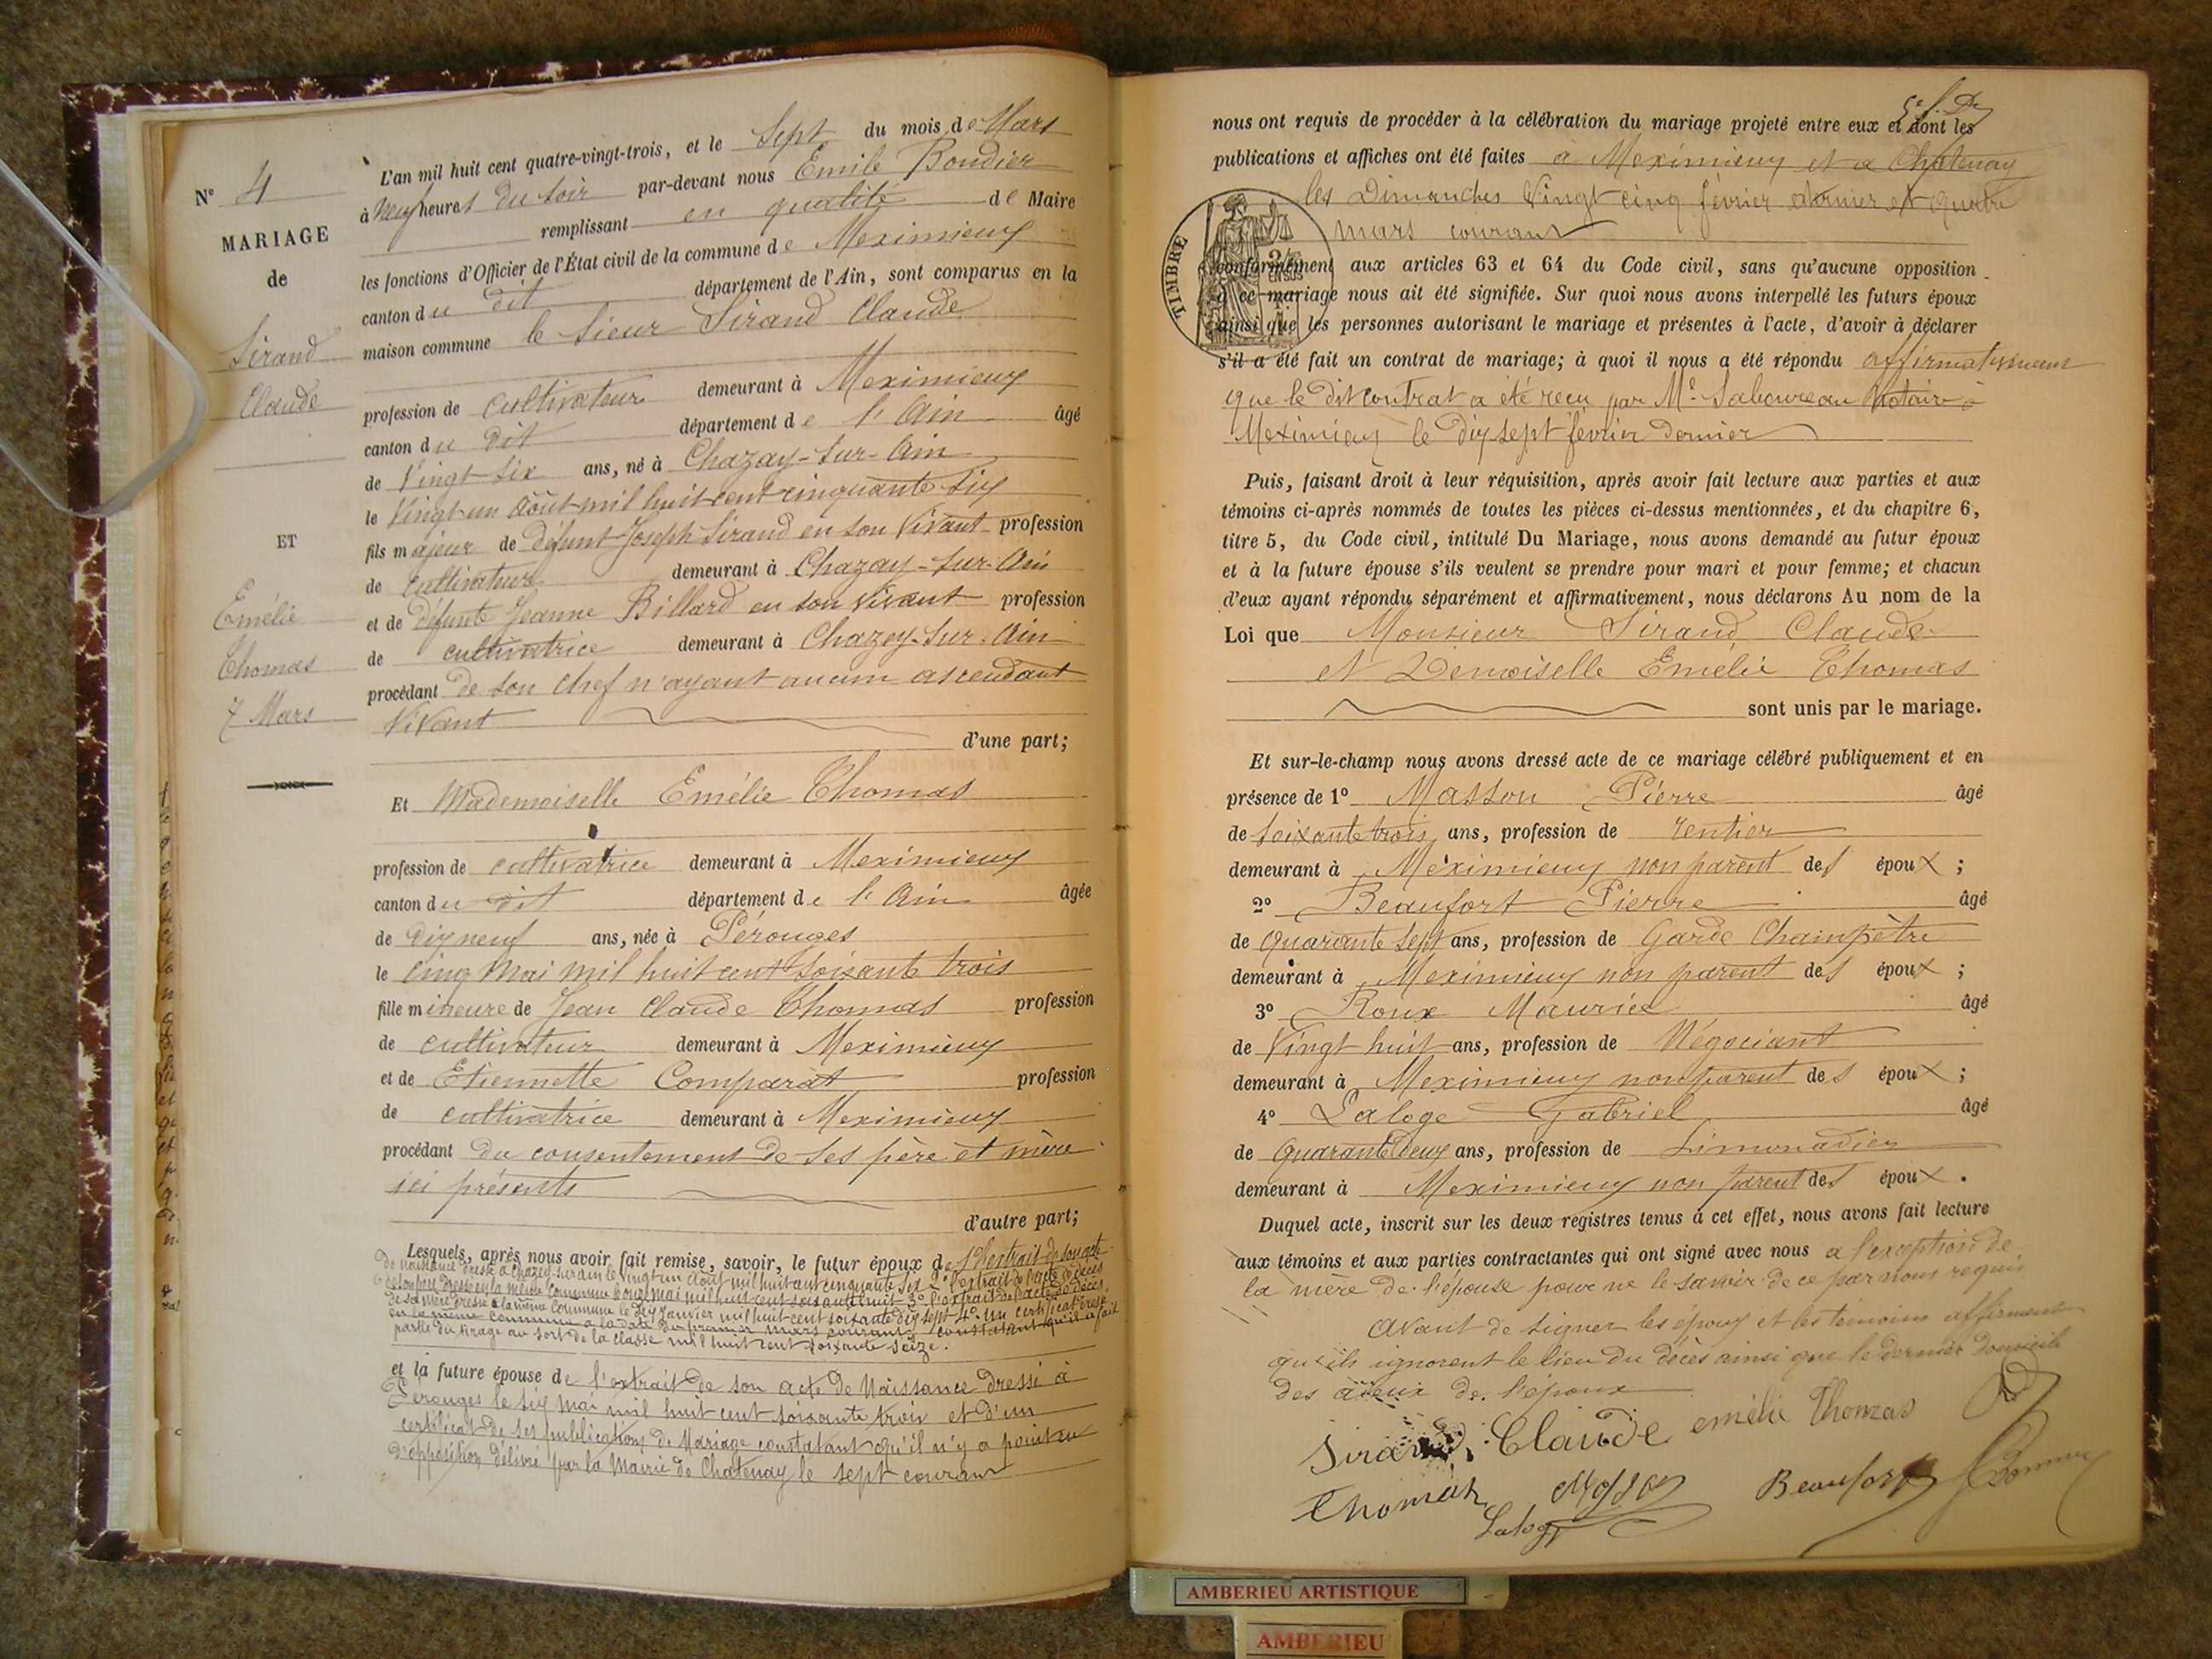 N° 4
MARIAGE
de
Sirand
Claude
ET
Emélie
Thomas
7 Mars
L'an mil huit cent quatre-vingt-trois, et le Sept du mois de Mars
à neuf heures du soir par-devant nous Emile Boudier
remplissant en qualité de Maire
les fonctions d'Officier de l'État civil de la commune de Meximieux
canton du dit département de l'Ain, sont comparus en la
maison commune le Sieur Sirand Claude
profession de cultivateur demeurant à Meximieux
canton du dit département de l'Ain âgé
de Vingt six ans, né à Chazay-sur-Ain
le Vingt un Août mil huit cent cinquante six
fils majeur de défunt Joseph Sirand en son vivant profession
de cultivateur demeurant à Chazay-sur-Ain
et de défunte Jeanne Billard en son vivant profession
de cultivatrice demeurant à Chazey-sur-Ain
procédant de son chef n'ayant aucun ascendant
vivant
d'une part;
Et Mademoiselle Emélie Thomas
profession de cultivatrice demeurant à Meximieux
canton du dit département de l'Ain âgée
de dix neuf ans, née à Pérouges
le cinq Mai mil huit cent soixante trois
fille mineure de Jean Claude Thomas profession
de cultivateur demeurant à Meximieux
et de Etiennette Comparat profession
de cultivatrice demeurant à Meximieux
procédant du consentement de ses père et mère
ici présents
d'autre part;
Lesquels, après nous avoir fait remise, savoir, le futur époux de 1° l'extrait de son acte
de naissance dressé à Chazey-sur-Ain le vingt un Août mil huit cent cinquante six 2° l'extrait de l'acte de décès
de son père dressé en la même commune le onze mai mil huit cent soixante huit 3° l'extrait de l'acte de décès
de sa mère dressé à la même commune le dix janvier mil huit cent soixante dix sept 4° un certificat dressé
en la même commune à la date du premier mars courant, constatant qu'il a fait
partie du tirage au sort de la classe mil huit cent soixante seize.
et la future épouse de l'extrait de son acte de Naissance dressé à
Pérouges le six mai mil huit cent soixante trois et d'un
certificat de ses publications de Mariage constatant qu'il n'y a point eu
d'opposition délivré par la Mairie de Chatenay le sept courant
nous ont requis de procéder à la célébration du mariage projeté entre eux et dont les
publications et affiches ont été faites à Meximieux et à Chatenay
les Dimanches Vingt cinq février dernier et quatre
mars courant
TIMBRE
conformément aux articles 63 et 64 du Code civil, sans qu'aucune opposition
à ce mariage nous ait été signifiée. Sur quoi nous avons interpellé les futurs époux
ainsi que les personnes autorisant le mariage et présentes à l'acte, d'avoir à déclarer
s'il a été fait un contrat de mariage; à quoi il nous a été répondu affirmativement
que le dit contrat a été reçu par Me Saboureau Notaire à
Meximieux le dix sept février dernier
Puis, faisant droit à leur réquisition, après avoir fait lecture aux parties et aux
témoins ci-après nommés de toutes les pièces ci-dessus mentionnées, et du chapitre 6,
titre 5, du Code civil, intitulé Du Mariage, nous avons demandé au futur époux
et à la future épouse s'ils veulent se prendre pour mari et pour femme; et chacun
d'eux ayant répondu séparément et affirmativement, nous déclarons Au nom de la
Loi que Monsieur Sirand Claude
et Demoiselle Emélie Thomas
sont unis par le mariage.
Et sur-le-champ nous avons dressé acte de ce mariage célébré publiquement et en
présence de 1° Masson Pierre âgé
de soixante trois ans, profession de rentier
demeurant à Meximieux non parent des époux ;
2° Beaufort Pierre âgé
de quarante sept ans, profession de Garde Champêtre
demeurant à Meximieux non parent des époux ;
3° Roux Maurice âgé
de Vingt huit ans, profession de Négociant
demeurant à Meximieux non parent des époux ;
4° Laloge Gabriel âgé
de quarante deux ans, profession de Limonadier
demeurant à Meximieux non parent des époux .
Duquel acte, inscrit sur les deux registres tenus à cet effet, nous avons fait lecture
aux témoins et aux parties contractantes qui ont signé avec nous à l'exception de
la mère de l'épouse pour ne le savoir de ce par nous requis
Avant de signer les époux et les témoins affirment
qu'ils ignorent le lieu du décès ainsi que le dernier domicile
des aïeux de l'époux
Sirand Claude emélie Thomas
Thomas Beaufort
Laloge
AMBERIEU ARTISTIQUE
AMBERIEU